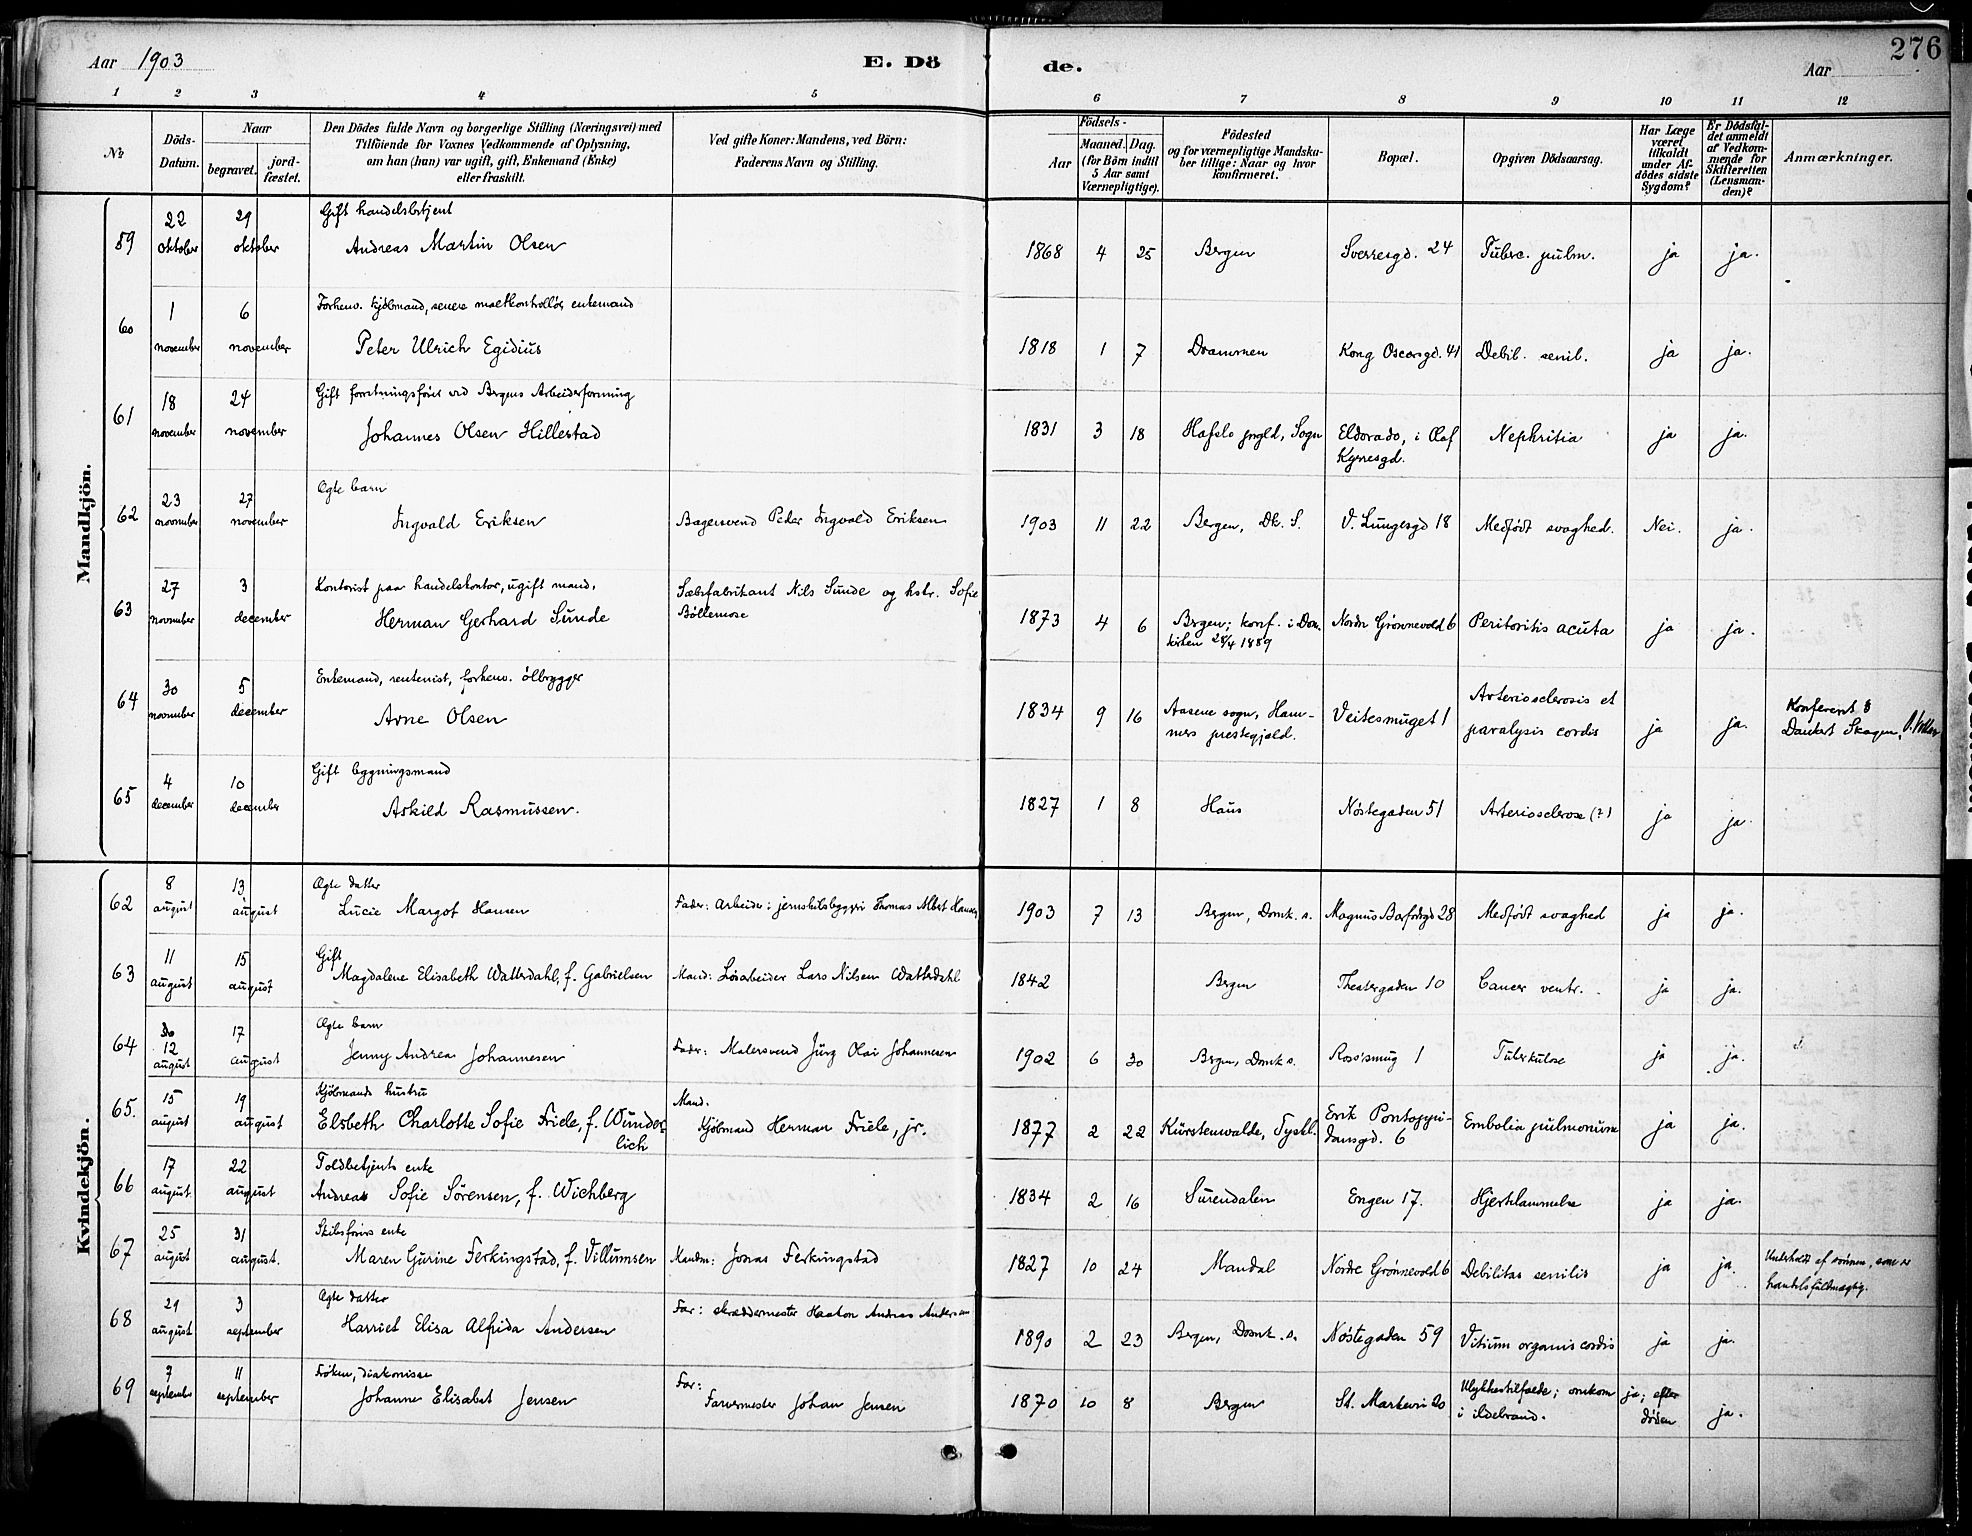 Aar 1903
E. Dö
de.
Aar
276
1 2 3 4 5 6 7 8 9 10 11 12
No.
Döds-Datum.
Naar
begravet.
jord-fæstet.
Den Dödes fulde Navn og borgerlige Stilling (Næringsvei) med
Tilföiende for Voxnes Vedkommende af Oplysning,
om han (hun) var ugift, gift, Enkemand (Enke)
eller fraskilt.
Ved gifte Koner: Mandens, ved Börn:
Faderens Navn og Stilling.
Födsels-
Aar
Maaned. Dag.
(for Börn indtil
5 Aar samt
Værnepligtige).
Födested
og for værnepligtige Mandska-
ber tillige: Naar og hvor
konfirmeret.
Bopæl.
Opgiven Dödsaarsag.
Har Læge
været
tilkaldt
under Af-
dödes sidste
Sygdom?
Er Dödsfal-
det anmeldt
af Vedkom-
mende for
Skifteretten
(Lensman-
den)?
Anmærkninger.
Mandkjön.
59 22 oktober 29 oktober
Gift handelsbetjent
Andreas Martin Olsen
1868 4 25 Bergen Sverresgd. 24 Tuberc. pulm. ja ja.
60 1 november 6 november
Forhenv. kjöbmand, senere maltkontrollör, enkemand
Peter Ulrich Egidius
1818 1 7 Drammen Kong Oscarsgd. 41 Debil. senil. ja ja.
61 18 november 24 november
Gift forretningsfører ved Bergens Arbeiderforening
Johannes Olsen Hillestad
1831 3 18 Hafslo prgld, Sogn Eldorado, i Olaf
Kyrresgd.
Nephritia ja ja.
62 23 november 27 november
Ægte barn
Ingvald Eriksen
Bagersvend Peder Ingvald Eriksen
1903 11 22 Bergen, Dk. S. V. Lungegd 18 Medfødt svaghed. Nei. ja.
63 27 november 3 december
Kontorist paa handelskontor, ugift mand.
Herman Gerhard Sunde
Sæbefabrikant Nils Sunde og hstr. Sofie
Böllemose
1873 4 6 Bergen; konf. i Dom-
kirken 28/4 1889
Nordre Grönnevold 6 Peritoritis acuta ja ja.
64 30 november 5 december
Enkemand, rentenist, forhenv. ölbrygger
Arne Olsen
1834 9 16 Aasene sogn, Ham-
mers prestegjæld.
Veitesmuget 1 Arteriosclerosis et
paralysis cordis
ja ja.
Konferent
Dankert Skagen,
65 4 december 10 december
Gift bygningsmand
Askild Rasmussen.
1827 1 8 Haus Nöstegaden 51 Arteriosclerose (?) ja ja.
Kvindekjön.
62 8 august 13 august
Ægte datter
Lucie Margot Hansen
Fader: Arbeider i jernskibsbyggeri Thomas Albert Hansen
1903 7 13 Bergen, Domk. s. Magnus Barfodsgd 28 Medfødt svaghed ja ja.
63 11 august 15 august
Gift
Magdalene Elisabeth Watterdahl, f. Gabrielsen
Mand: Løsarbeider Lars Nilsen Watterdahl
1842 Bergen Theatergaden 10 Cancer ventr. ja ja.
64 12 august 17 august
Ægte barn
Jenny Andrea Johannesen
Fader: Malersvend Jürg Olai Johannesen
1902 6 30 Bergen, Domk s. Rosésmug 1 Tuberkulose ja ja.
65. 15 august 19 august
Kjöbmands hustru
Elsbeth Charlotte Sofie Friele, f. Wunder-
lich
Mand:
Kjöbmand Herman Friele, jr.
1877 2 22 Kürstenwalde, Tyskl. Erik Pontoppi-
dansgd. 6
Embolia pulmonum ja ja.
66 17 august 22 august
Toldbetjents enke
Andreas Sofie Sörensen, f. Wichberg
1834 2 16 Surendalen Engen 17. Hjertelammelse ja ja.
67 25 august 31 august.
Skibsförers enke
Maren Gurine Ferkingstad, f. Villumsen
Manden: Jonas Ferkingstad
1827 10 24 Mandal Nordre Grönnevold 6 Debilitas senilis ja ja.
Underholdt af sönnen, som er
handelsfuldmægtig.
68 29 august 3 september
Ægte datter
Harriet Elisa Alfrida Andersen
Far: skræddermester Haakon Andreas Andersen
1890 2 23 Bergen, Domk. s. Nöstegaden 59 Vitium organis cordis ja ja.
69 7 september 11 september
Fröken, diakonisse
Johanne Elisabet Jensen
Far:
Farvermester Johan Jensen
1870 10 8 Bergen St. Markevei 20 Ulykkestilfælde; omkom
i ildebrand.
ja; efter
döden
ja.